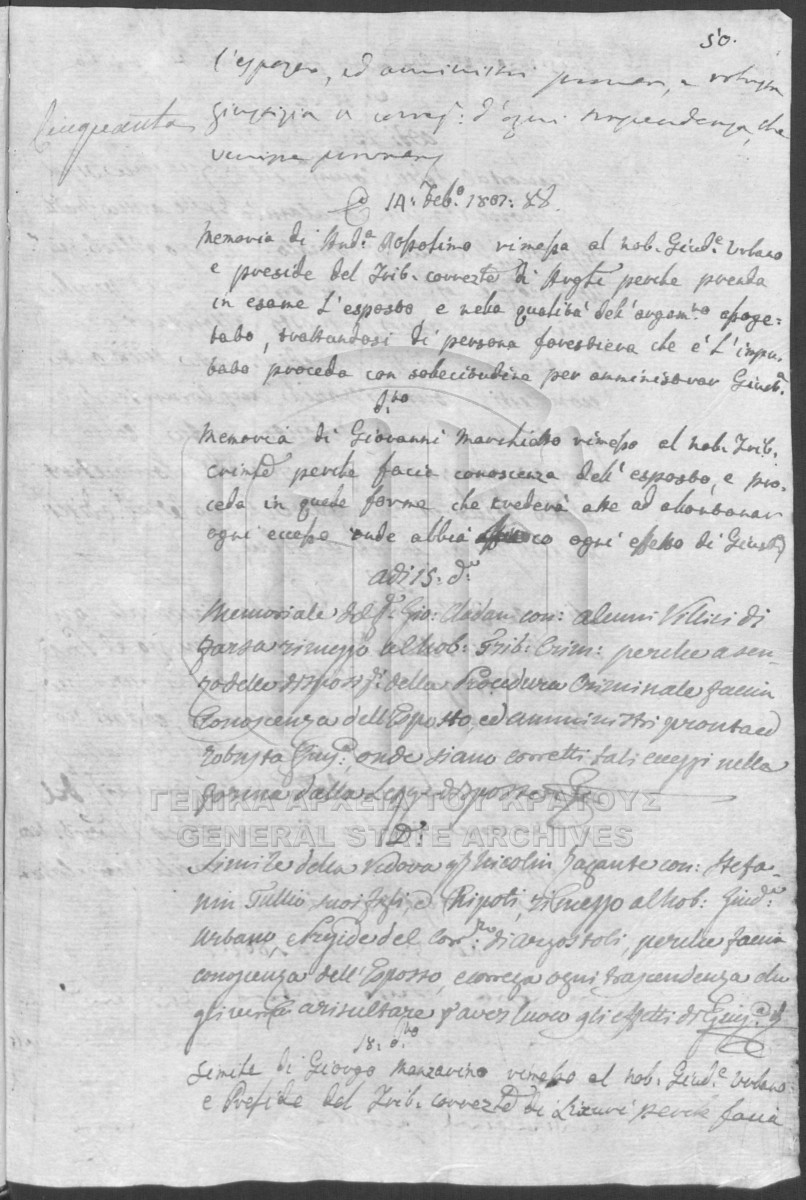 50.
l'esposto, ed amministri pronta, e robusta
Cinquanta
giustizia a correz: d'ogni trascendenza, che
venisse
14: Feb.o 1807: SV.
Memoria di And.a rimessa al nob. Giud.e Urbano
e preside del Trib. correz.le di Arg.li perche prenda
in esame l'esposto, e nella qualità dell'argom.to
trattandosi di persona forestiera che è l'impu-
tato proceda con sollecitudine per amministrar Giust.a
d.to
Memoria di Giovanni Marchiatto rimessa al nob. Trib.
crim.le perche facia conoscenza dell'esposto, e pro-
ceda in quelle forme che crederà atte ad allontanar
ogni eccesso onde abbia luoco ogni effetto di Giust.a
adi 15: d.o
Memoriale del S.r Gio: con: alcuni Villici di
Farsa rimesso al Nob: Trib: Crim: perche a sen-
so delle disposiz.i della Procedura Criminale faccia
Conoscenza dell'Esposto, ed amministri pronta ed
robusta Giuz.a onde siano corretti tali eccessi nella
forma dalla Legge disposta
ΓΕΝΙΚΑ ΑΡΧΕΙΑ ΤΟΥ ΚΡΑΤΟΥΣ
GENERAL STATE ARCHIVES
D.o
Simile della Vedova q.m Nicolin con: Stefa-
nin Tullio, suoi figli, e Nipoti, rimesso al Nob: Giud.e
Urbano, e Preside del Corr.le: di Argostoli, perche faccia
conoscenza dell'Esposto, e correga ogni trascendenza che
gli venirà a risultare p aver luoco gli effetti di Giuz.a
18. d.to
Simile di Giorgo Manzavino rimesso al nob. Giud.e Urbano
e Preside del Trib. correz.le di Lixuri perche facia